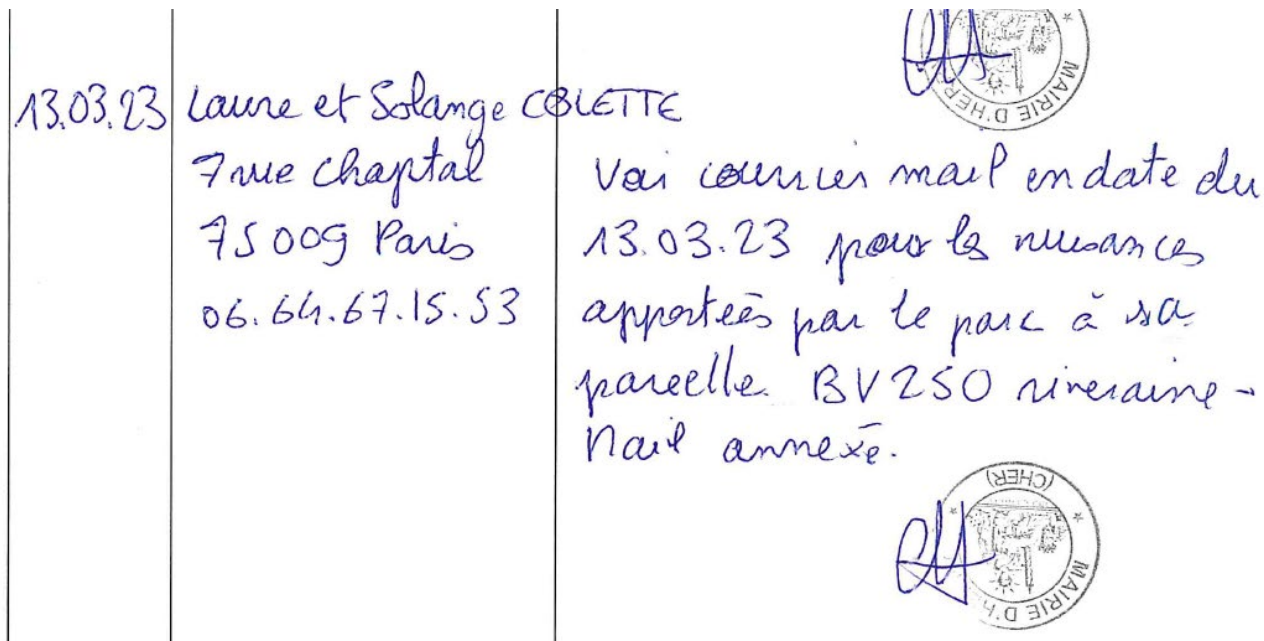 MAIRIE D'HER
13.03.23
Laure et Solange COLETTE
7 rue Chaptal
75009 Paris
06.64.67.15.53
Voir courrier mail en date du
13.03.23 pour les nuisances
apportées par le parc à sa
parcelle BV250 riveraine -
Mail annexé.
(CHER)
MAIRIE D'H